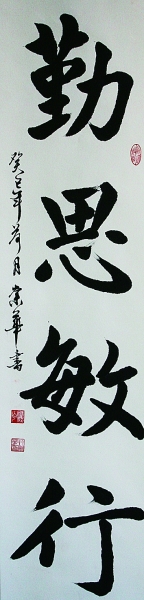 勤思敏行
癸巳年荷月崇華書